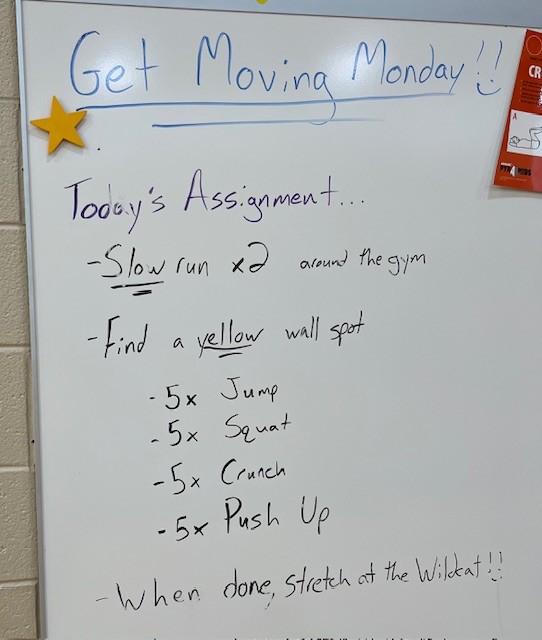 Get Moving Monday!!
CR
A
Today's Assignment...
-Slow run x2 around the gym
-Find a yellow wall spot
-5x Jump
-5x Squat
-5x Crunch
-5x Push Up
-When done, stretch at the Wildcat!!